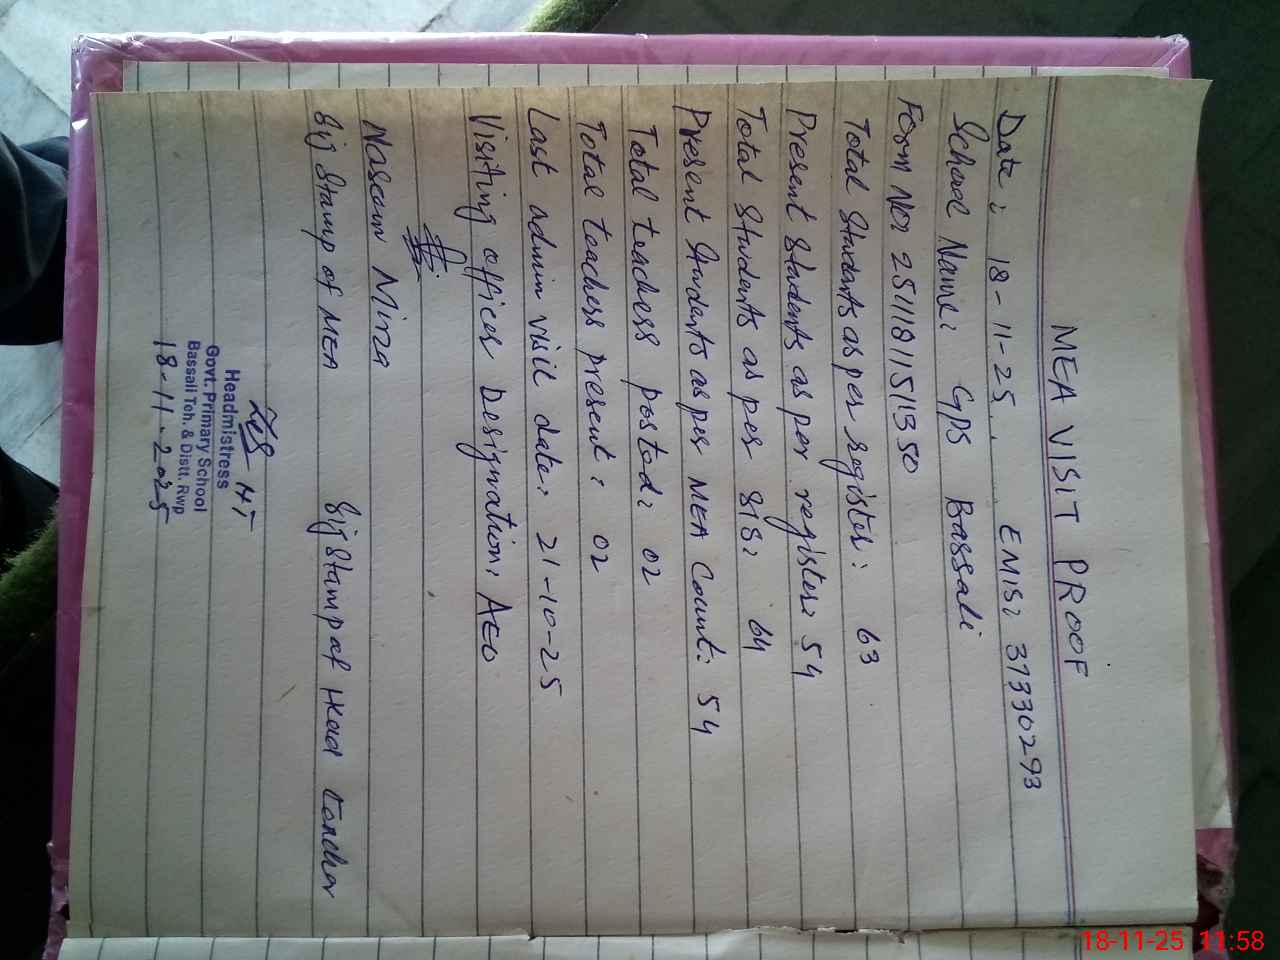 MEA VISIT PROOF
Date: 18-11-25. EMIS: 37330293
School Name: GPS Bassali
Form No: 25111811511350
Total Students as per register: 63
Present Students as per register: 54
Total Students as per SIS: 64
Present Students as per MEA Count: 54
Total teachers posted: 02
Total teachers present: 02
Last admin visit date: 21-10-25
Visiting officer Designation: AEO
Naseem Mirza
Sig Stamp of MEA Sig Stamp of Head teacher
HT
Headmistress
Govt. Primary School
Bassali Teh. & Distt. Rwp
18-11-2025
18-11-25 11:58